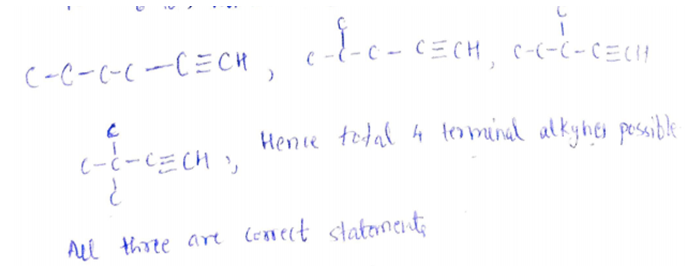 C-C-C-C-C≡CH, C-C-C-C≡CH, C-C-C-C≡CH
C
C
C-C-C≡CH, Hence total 4 terminal alkynes possible
C
C
All three are correct statements